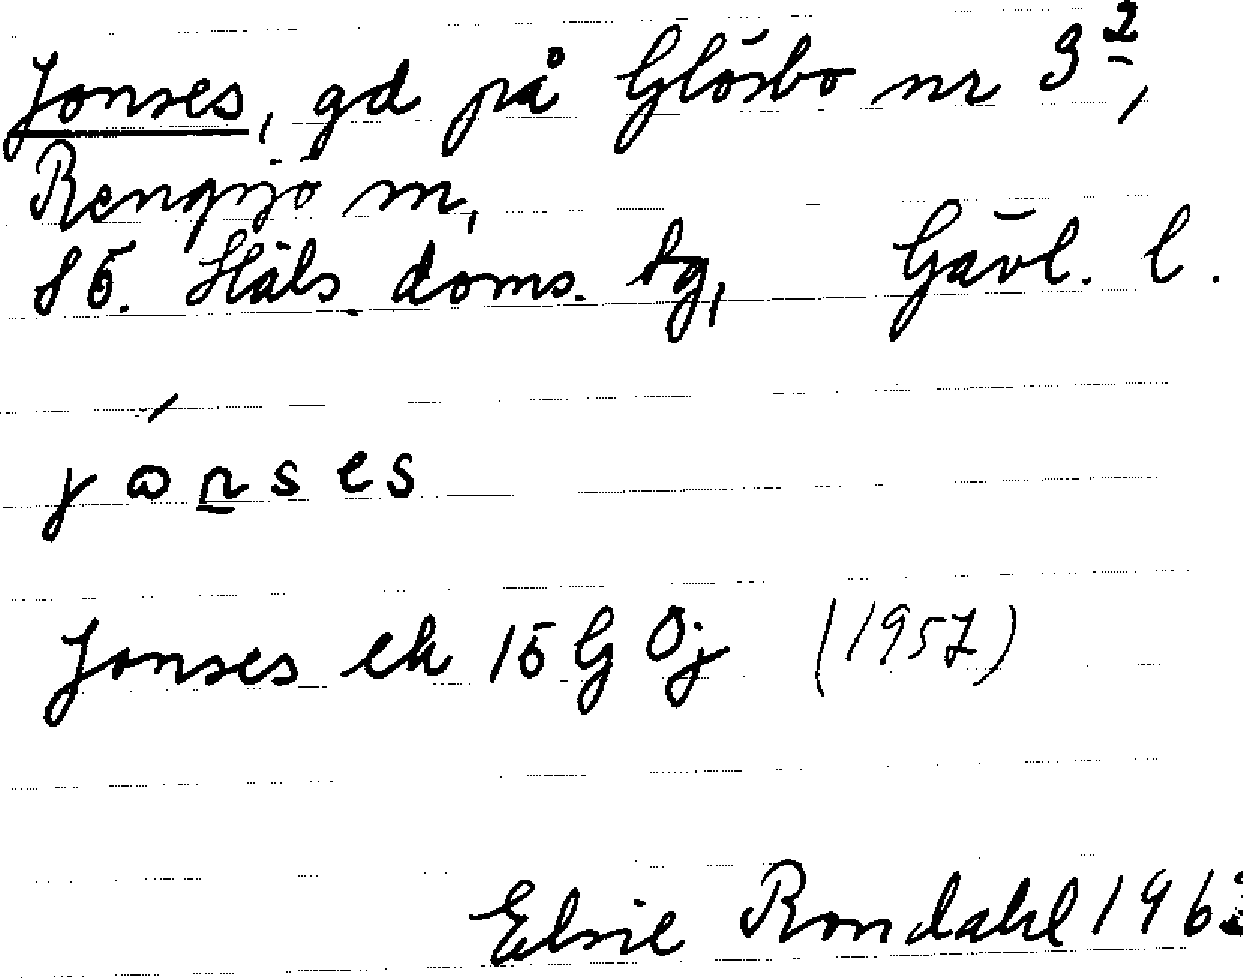 Jonses, gd på Glösbo nr 3 2,
Rengsjö sn,
Sö. Häls. doms. tg, Gävl. l.
jånses
Jonses ek 15G Öj (1957)
Elsie Rondahl 1963